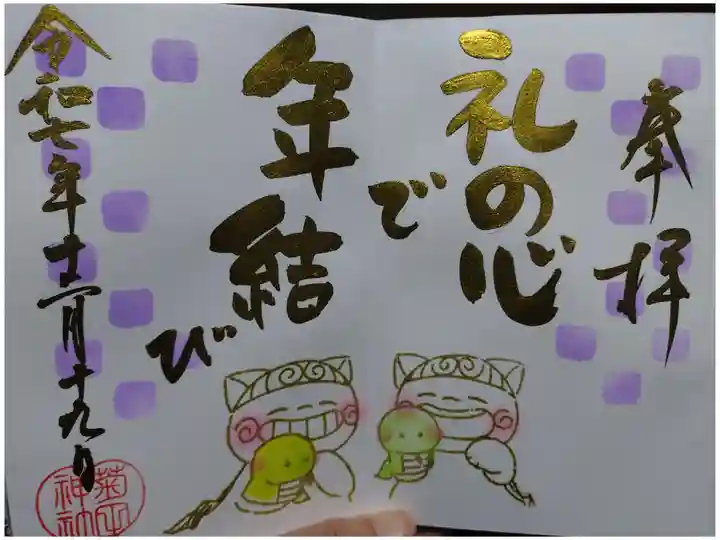 奉拝
礼の心
で
年結
び
令和七年十二月十九日
菊田
神社